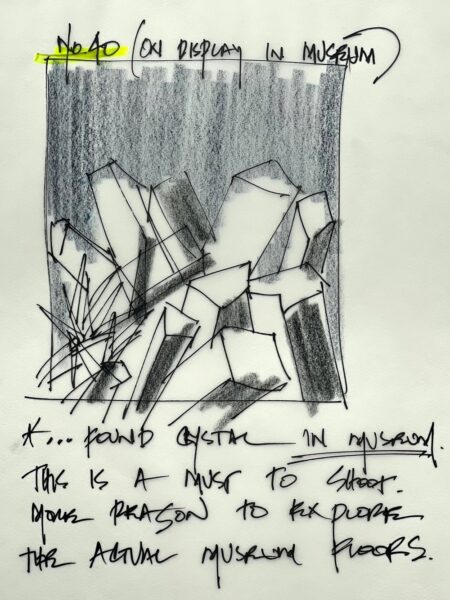 No.40 (ON DISPLAY IN MUSEUM)
*... FOUND CRYSTAL IN MUSEUM.
THIS IS A MUST TO SHOOT.
MORE REASON TO EXPLORE
THE ACTUAL MUSEUM FLOORS.